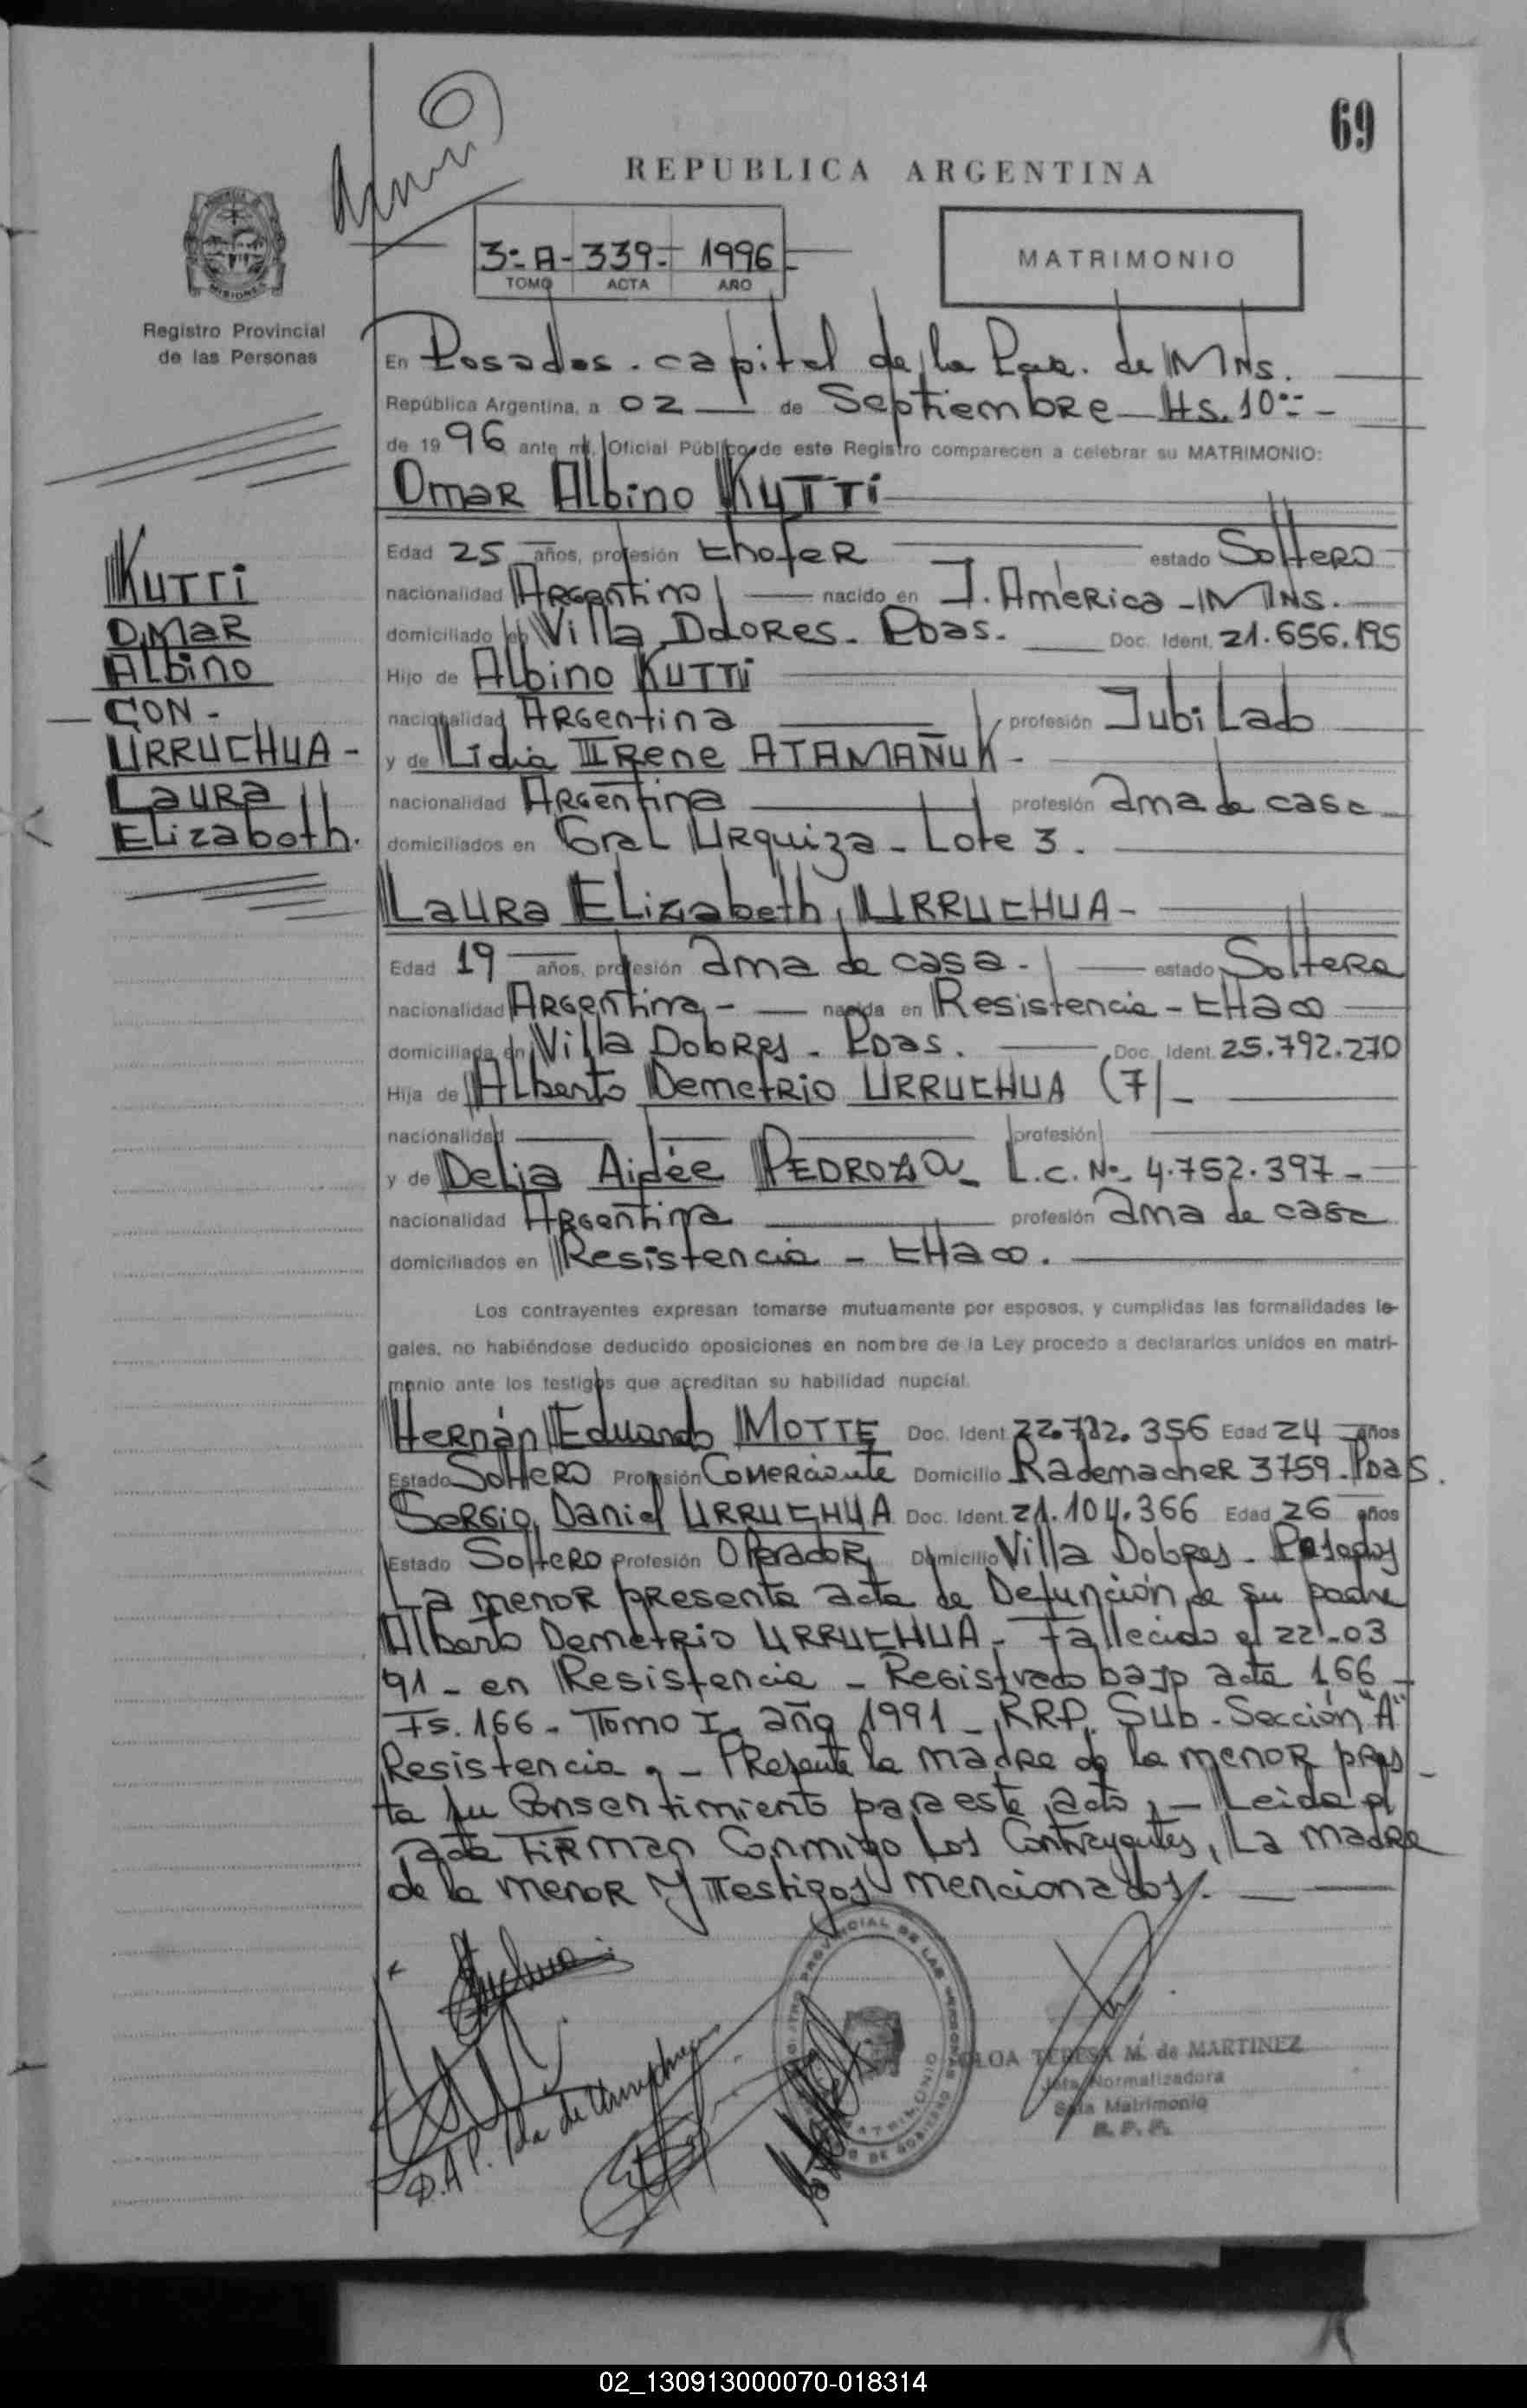 69
REPUBLICA ARGENTINA
3º A - 339 - 1996
TOMO ACTA AÑO
MATRIMONIO
Registro Provincial
de las Personas
MISIONES
En Posadas. capital de la Pcia. de MNS.
República Argentina, a 02 de Septiembre Hs. 10
de 1996 ante mí, Oficial Público de este Registro comparecen a celebrar su MATRIMONIO:
Omar Albino KUTTI
Edad 25 años, profesión CHOFER estado SOLTERO
nacionalidad ARGENTINO nacido en J. América - MNS.
domiciliado en Villa DOLORES. Pdas. Doc. Ident. 21.656.195
Hijo de Albino KUTTI
nacionalidad ARGENTINA profesión JUBILADO
y de Lidia IRENE ATAMAÑUK -
nacionalidad ARGENTINA profesión ama de casa
domiciliados en Gral URquiza - Lote 3.
KUTTI
OMAR
Albino
CON -
URRUCHUA -
LAURA
Elizabeth.
LAURA Elizabeth URRUCHUA -
Edad 19 años, profesión ama de casa - estado Soltera
nacionalidad ARGENTINA - nacida en Resistencia - CHACO
domiciliada en Villa DOLORES - Pdas. Doc. Ident. 25.792.270
Hija de Alberto Demetrio URRUCHUA (7) -
nacionalidad profesión
y de Delia Aidée PEDROZA - L.C. Nº 4.752.397 -
nacionalidad ARGENTINA profesión ama de casa
domiciliados en Resistencia - CHACO.
Los contrayentes expresan tomarse mutuamente por esposos, y cumplidas las formalidades le-
gales, no habiéndose deducido oposiciones en nombre de la Ley procedo a declararlos unidos en matri-
monio ante los testigos que acreditan su habilidad nupcial.
Hernán Eduardo MOTTE Doc. Ident. 22.782.356 Edad 24 años
Estado SOLTERO Profesión Comerciante Domicilio Rademacher 3759 - Pdas.
Sergio Daniel URRUCHUA Doc. Ident. 21.104.366 Edad 26 años
Estado Soltero Profesión Operador Domicilio Villa Dolores - Posadas
La menor presenta acta de Defunción de su padre
Alberto Demetrio URRUCHUA - Fallecido el 22-03
91 - en Resistencia - Registrado bajo acta 166 -
Fs. 166 - Tomo I - año 1991 - RRP. Sub-Sección "A"
Resistencia. - Presente la madre de la menor pres -
ta su Consentimiento para este acto. - Leida el
acta FIRMAN Conmigo los Contrayentes, La madre
de la menor y Testigos mencionados.
D.A.P. Vda de Urruchua
TERESA M. de MARTINEZ
Jefa Normalizadora
Sala Matrimonio
R. P. P.
02_130913000070-018314